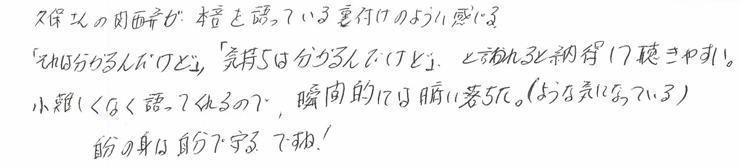 久保さんの関西弁が本音を語っている裏付けのように感じる
「それは分かるんだけど」、「気持ちは分かるんだけど」、と語られると納得して聴きやすい。
小難しくなく語ってくれるので、瞬間的には腑に落ちた。(ような気になっている)
自分の身は自分で守るですね!